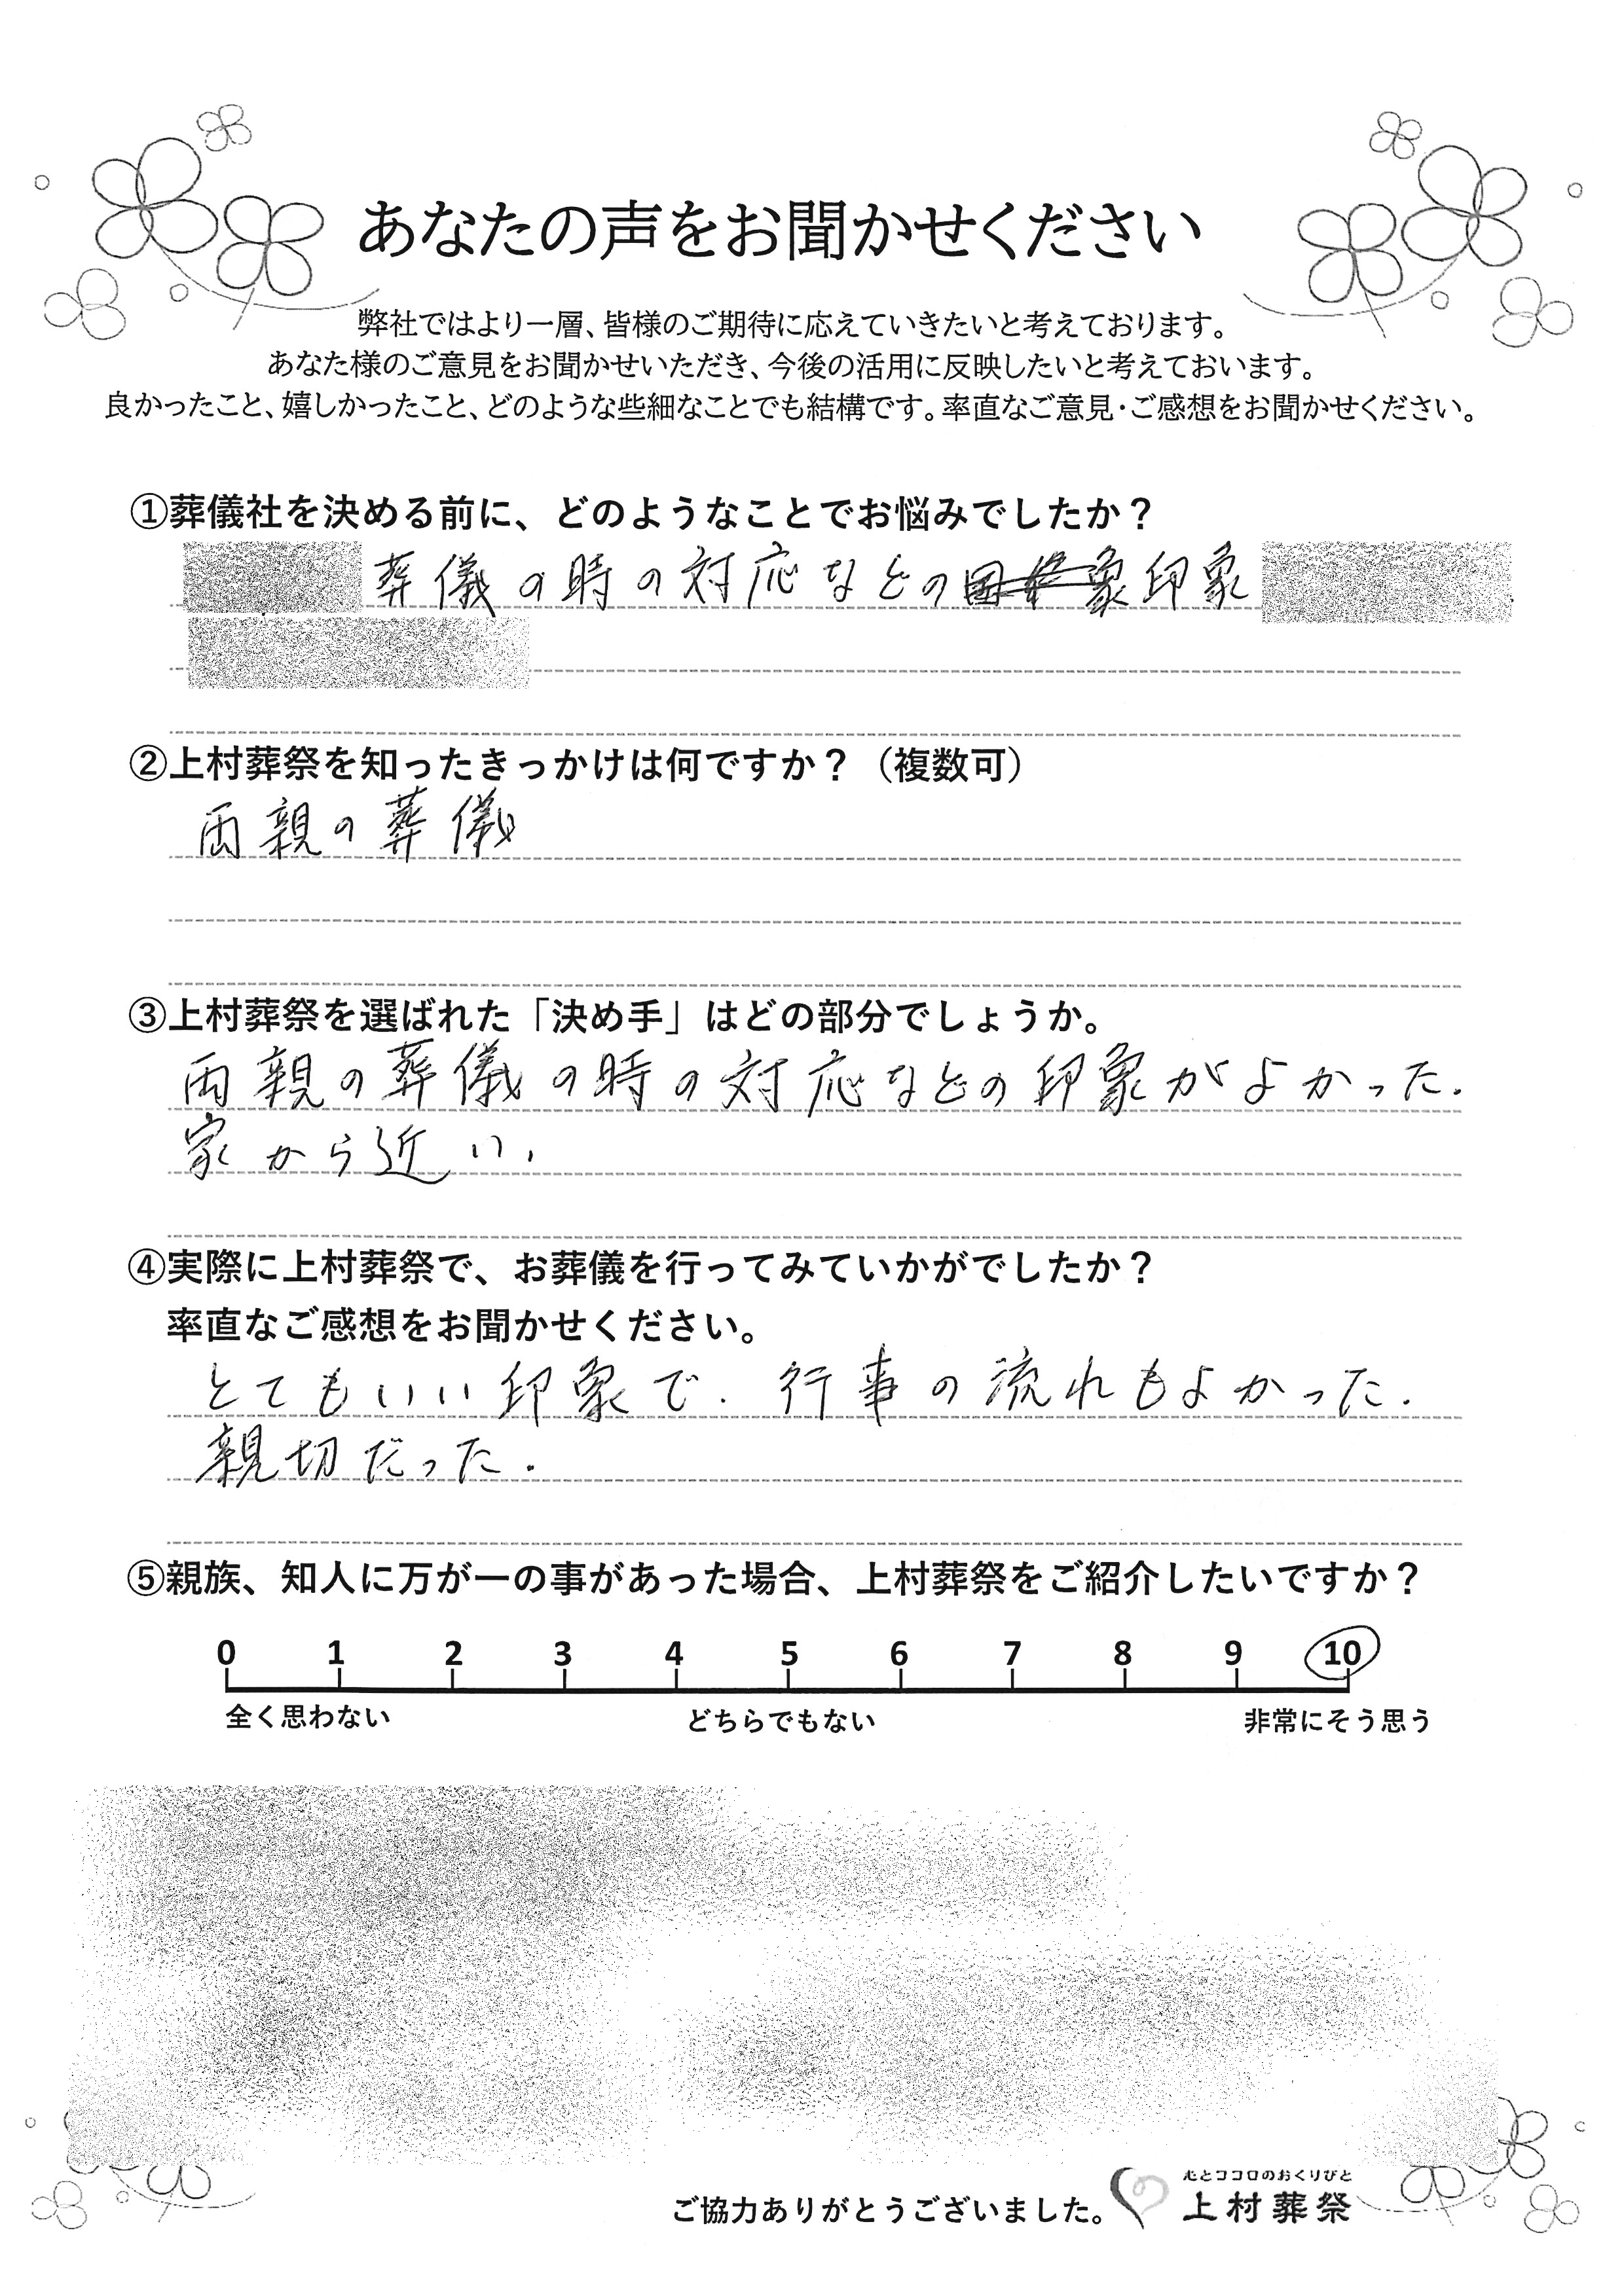 あなたの声をお聞かせください
弊社ではより一層、皆様のご期待に応えていきたいと考えております。
あなた様のご意見をお聞かせいただき、今後の活用に反映したいと考えておいます。
良かったこと、嬉しかったこと、どのような些細なことでも結構です。率直なご意見・ご感想をお聞かせください。
①葬儀社を決める前に、どのようなことでお悩みでしたか？
葬儀の時の対応などの象印象
②上村葬祭を知ったきっかけは何ですか？（複数可）
両親の葬儀
③上村葬祭を選ばれた「決め手」はどの部分でしょうか。
両親の葬儀の時の対応などの印象がよかった.
家から近い.
④実際に上村葬祭で、お葬儀を行ってみていかがでしたか？
率直なご感想をお聞かせください。
とてもいい印象で. 行事の流れもよかった.
親切だった.
⑤親族、知人に万が一の事があった場合、上村葬祭をご紹介したいですか？
0 1 2 3 4 5 6 7 8 9 10
全く思わない どちらでもない 非常にそう思う
心とココロのおくりびと
ご協力ありがとうございました。 上村葬祭